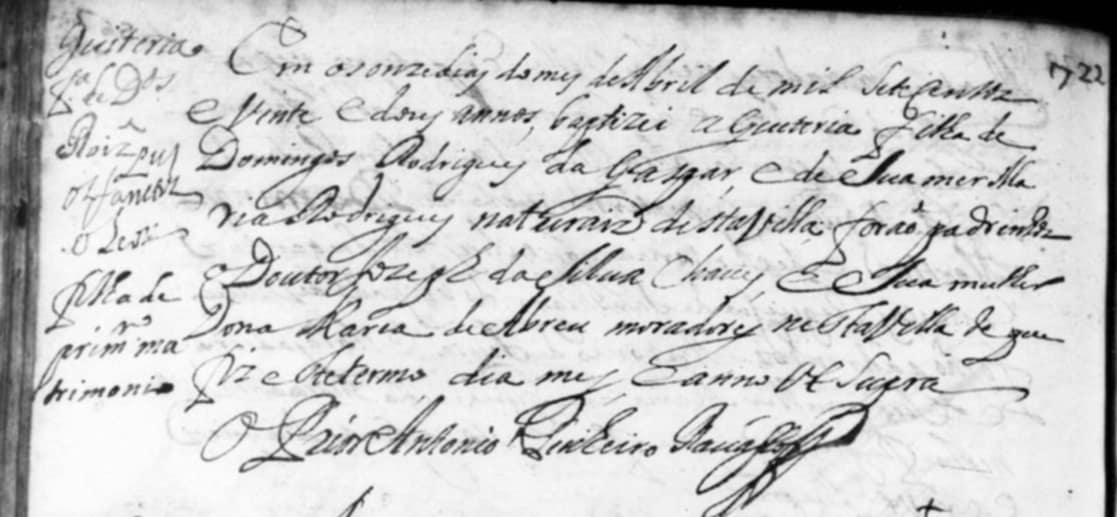 Guiteria
fª de Dos
Roiz
filha de
prim.ro ma
trimonio
1722
Em os onze dias do mes de Abril de mil sete centos
e vente e dous annos, baptizei a Guiteria filha de
Domingos Rodrigues da Gasgar, e de sua mer Ma
ria Rodrigues naturais desta Villa, forão padrinhos
o Doutor Jozeph da Silva Chaves, E sua mulher
Dona Maria de Abreu moradores nesta Villa de que
fiz este termo, dia mes, e anno Vt Supra
O Prior Antonio Pinheiro